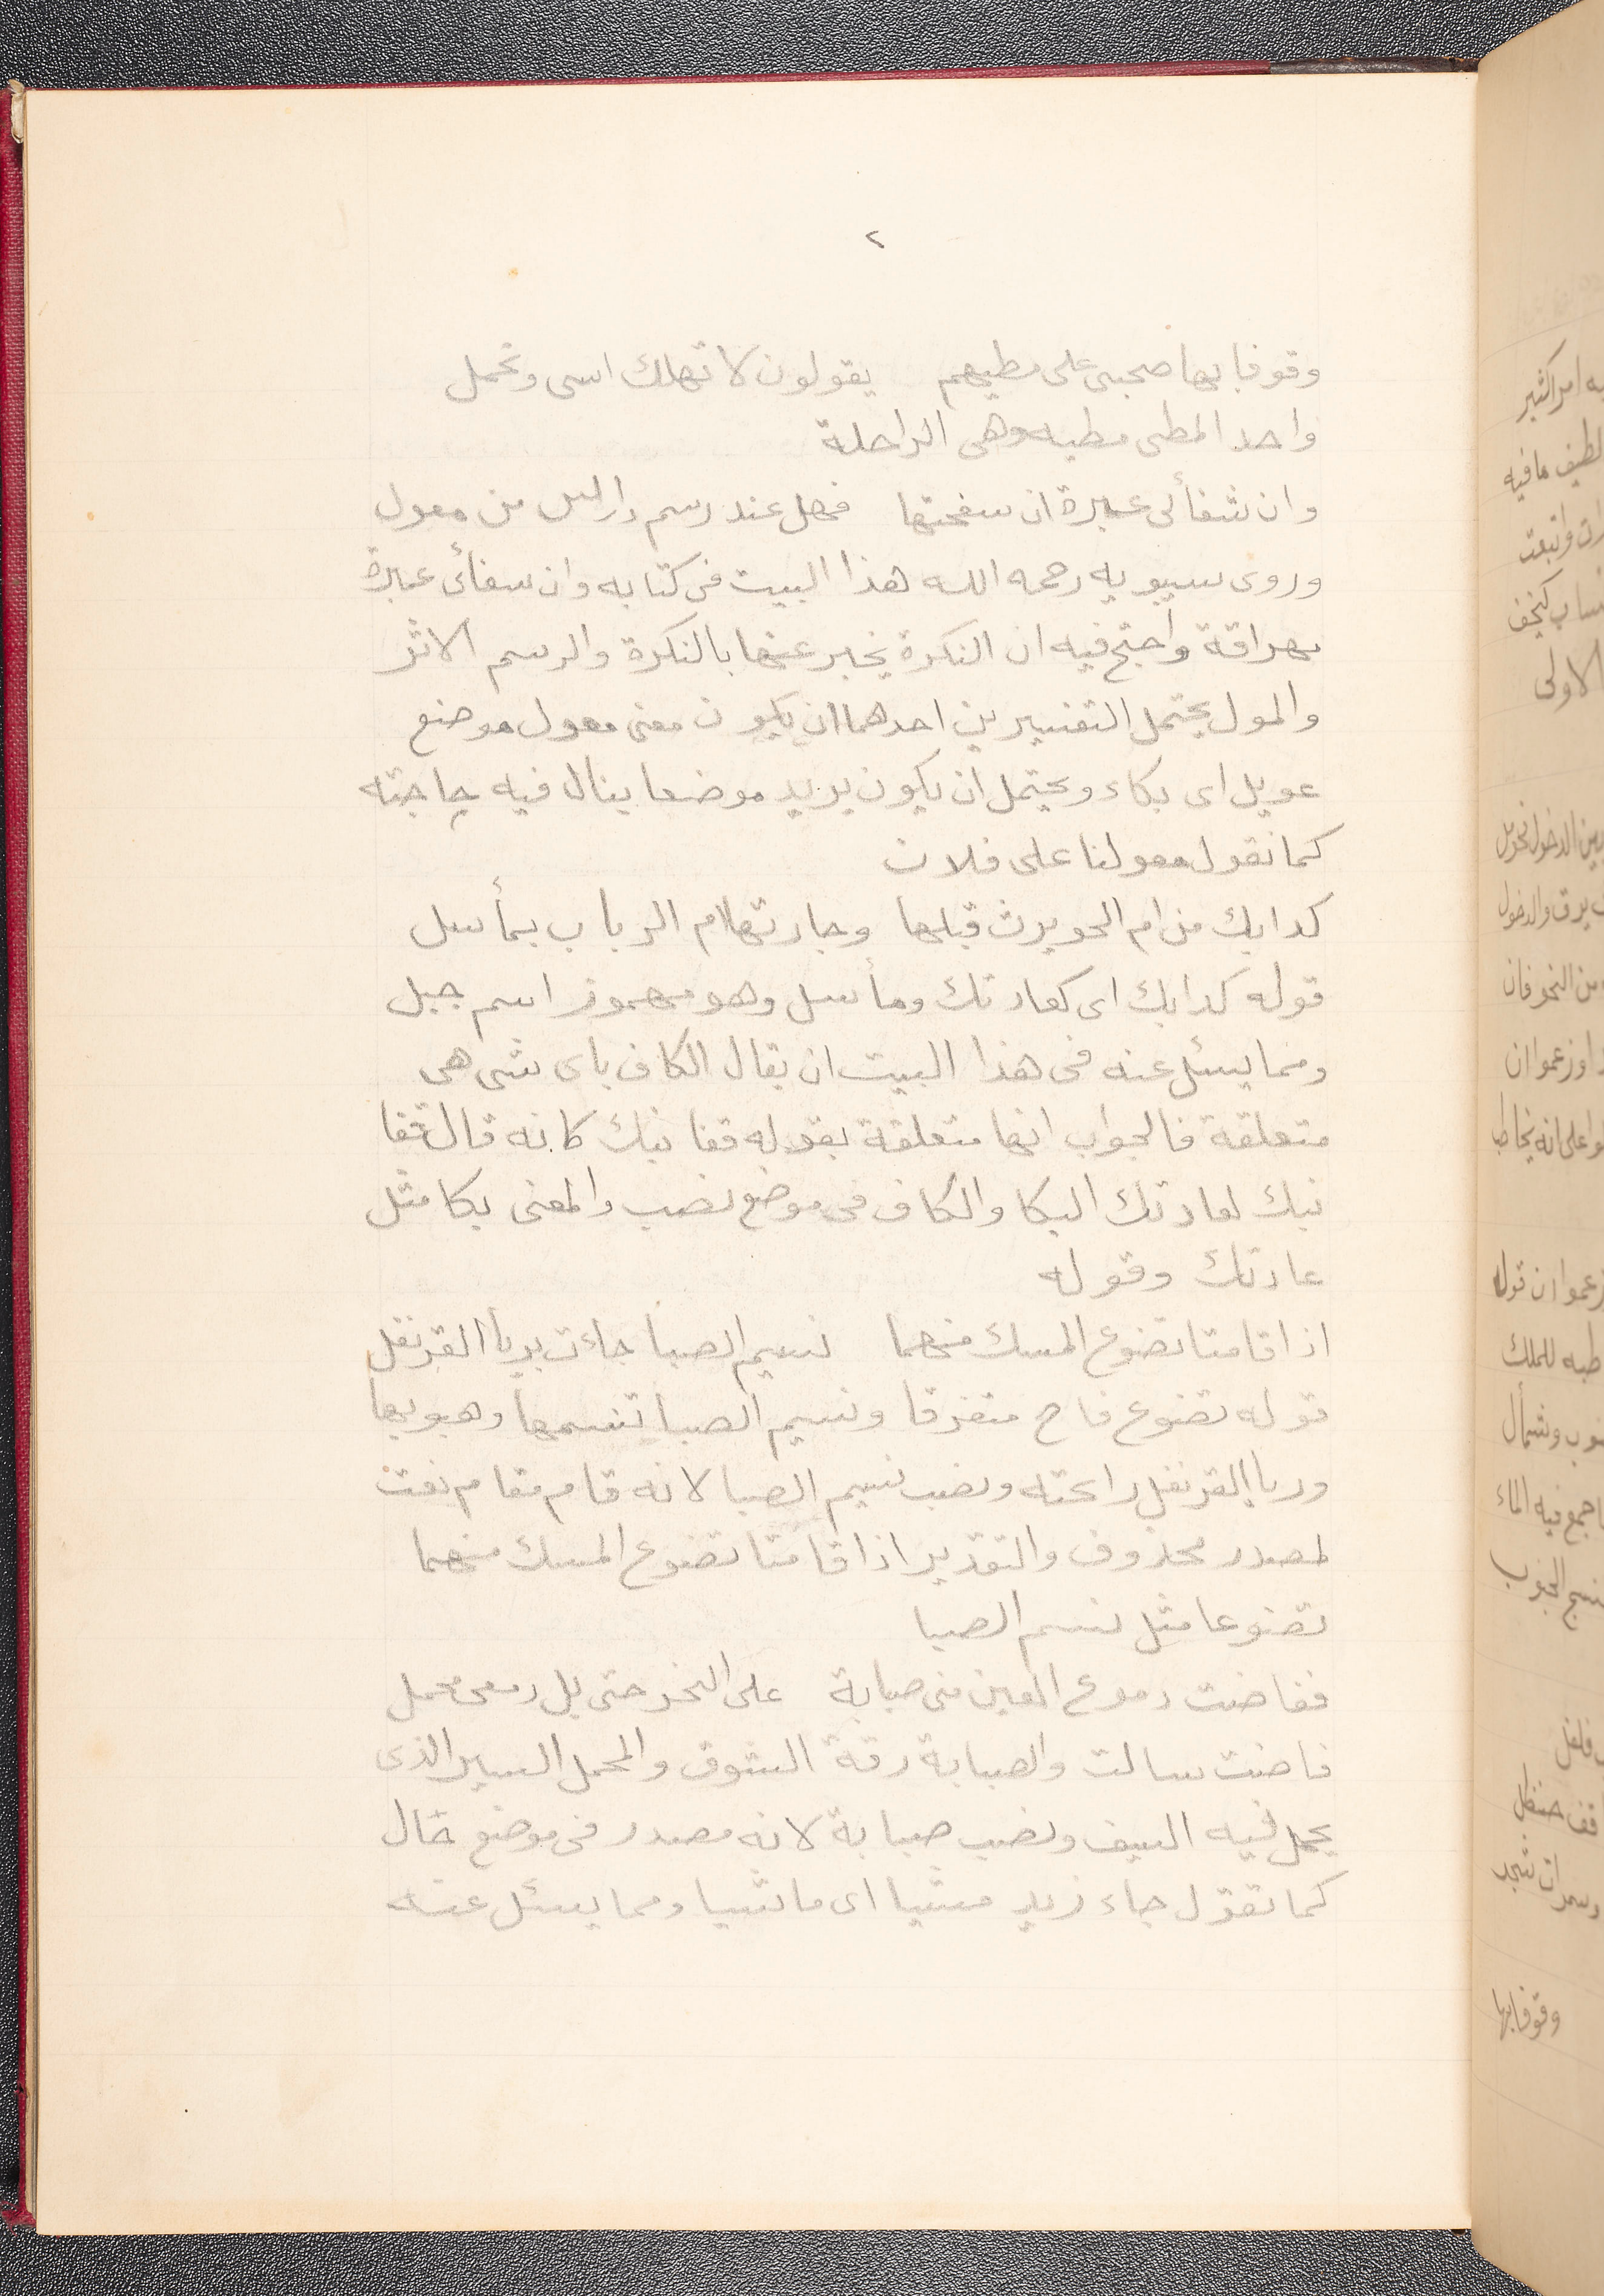 ٢
وقوفا بها صحبى على مطيهم يقولون لا تهلك اسى وتحمل
واحد المطى مطيه وهى الراحلة
وان شفأئى عبرة ان سفحتها فهل عند رسم دارس من معول
وروى سيبويه رحمه الله هذا البيت فى كتابه وان سفأئى عبرة
مهراقة واحتج فيه ان النكرة يخبر عنها بالنكرة والرسم الاثر
والمول يحتمل التفسيرين احدهما ان يكون معنى معول موضع
عويل اى بكاء ويحتمل ان يكون يريد موضعا ينال فيه حاجته
كما نقول معولنا على فلان
كدابك من ام الحويرث قبلها وجارتها ام الرباب بمأسل
قوله كدابك اى كعادتك ومأسل وهو مهموز اسم جبل
ومما يسئل عنه فى هذا البيت ان يقال الكاف باى شى هى
متعلقة فالجواب انها متعلقة بقوله قفا نبك كانه قال قفا
نبك لعادتك البكا والكاف فى موضع نصب والمعنى بكا مثل
عادتك وقوله
اذا قامتا تضوع المسك منهما نسيم الصبا جاءت بريا القرنفل
قوله تضوع فاح متفرقا ونسيم الصبا تنسمها وهبوبها
وريا القرنفل رائحته ونصب نسيم الصبا لانه قام مقام نعت
لمصدر محذوف والتقدير اذا قامتا تضوع المسك منهما
تضوعا مثل نسيم الصبا
ففاضت دموع العين منى صبابة على النحر حتى بل دمعى محمل
فاضت سالت والصبابة رقة الشوق والمحمل السير الذى
يحمل فيه السيف ونصب صبابة لانه مصدر فى موضع حال
كما تقول جاء زيد مشيا اى ماشيا ومما يسئل عنه